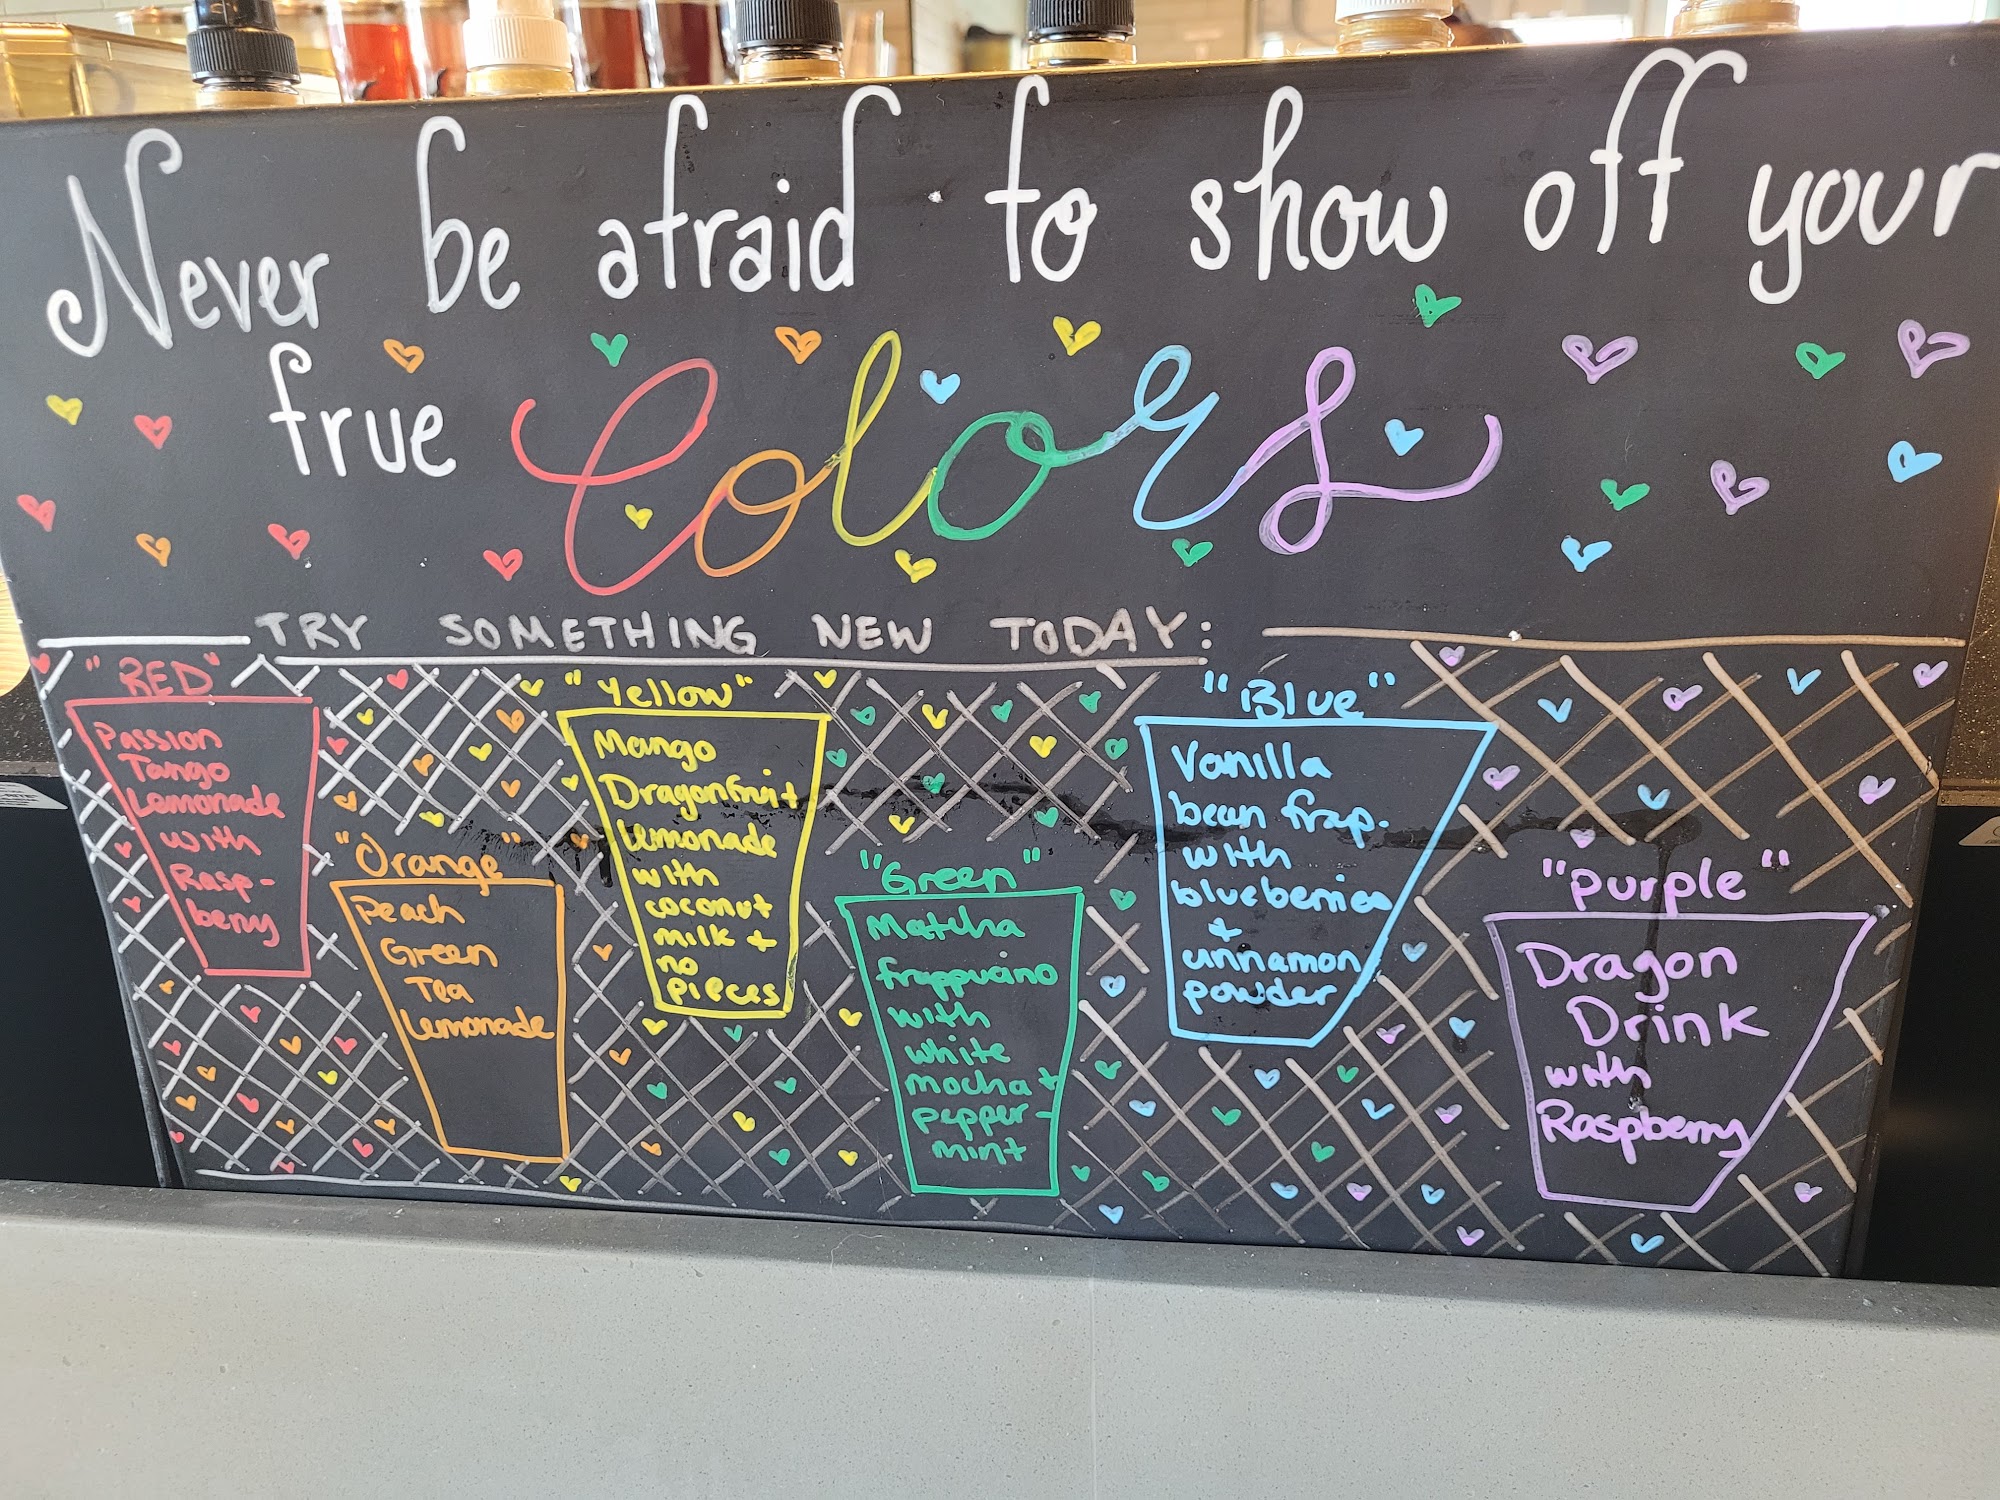 Never be afraid to show off your
true Colors
TRY SOMETHING NEW TODAY:
"RED"
Passion
Tango
Lemonade
with
Rasp-
berry
"Orange"
Peach
Green
Tea
Lemonade
"Yellow"
Mango
Dragonfruit
Lemonade
with
coconut
milk +
no
pieces
"Green"
Matcha
frappucino
with
white
mocha +
pepper-
mint
"Blue"
Vanilla
bean frap.
with
blueberries
+
cinnamon
powder
"Purple"
Dragon
Drink
with
Raspberry